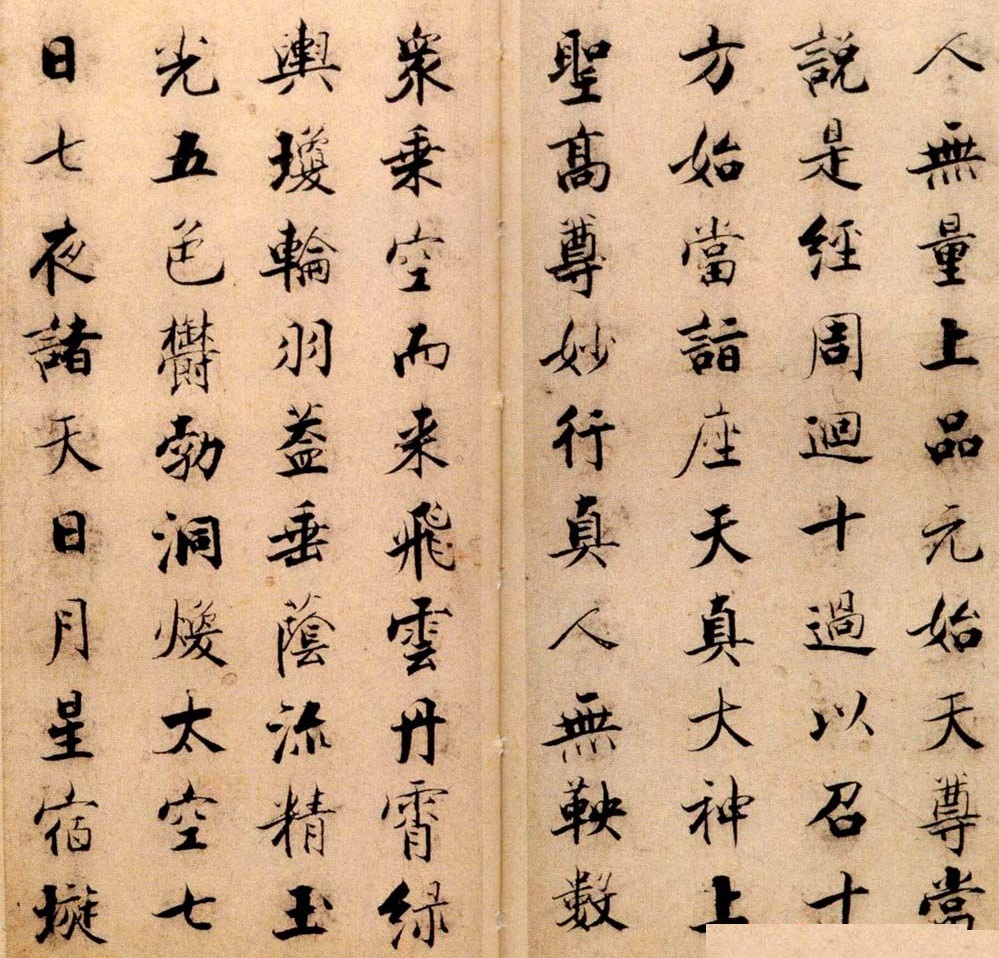 人無量上品元始天尊當
説是經周迴十過以召十
方始當詣座天真大神上
聖髙尊妙行真人無鞅數
衆乗空而来飛雲丹霄緑
輿瓊輪羽蓋垂蔭流精玉
光五色欝勃洞煥太空七
日七夜諸天日月星宿璇